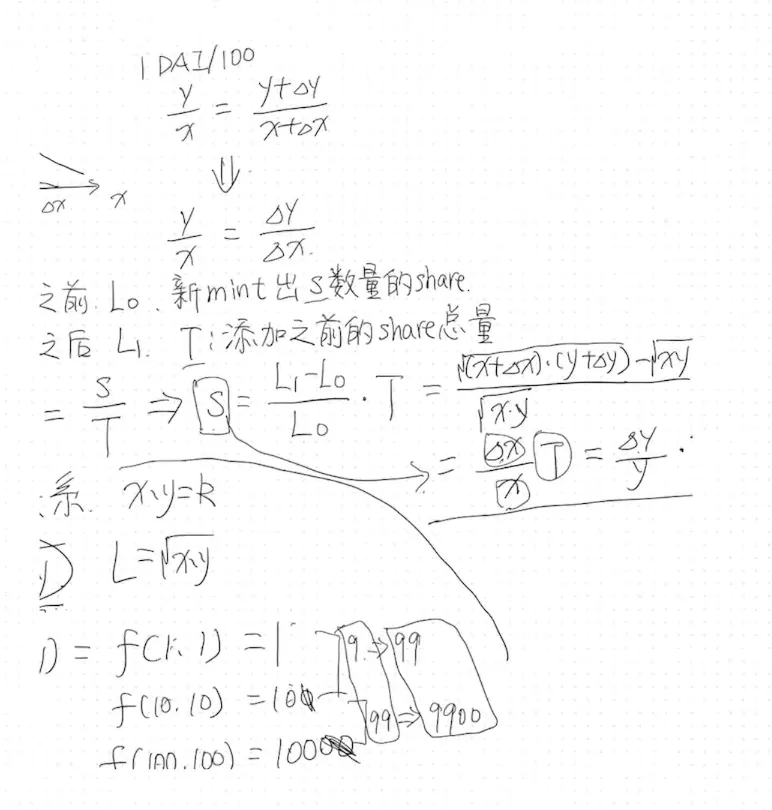 1 DAI/100
y/x = (y+Δy)/(x+Δx)
⇓
Δx x
y/x = Δy/Δx.
之前 L₀. 新mint出S数量的share.
之后 L₁. T:添加之前的share总量
= S/T ⇒ S = (L₁-L₀)/L₀ · T = (√(x+Δx)·(y+Δy) - √xy)/√x·y
= Δx/x T = Δy/y ·
系. x·y=k
D L=√x·y
1) = f(1,1) = 1
f(10.10) = 10
f(100.100) = 100
9 ⇒ 99
99 ⇒ 9900